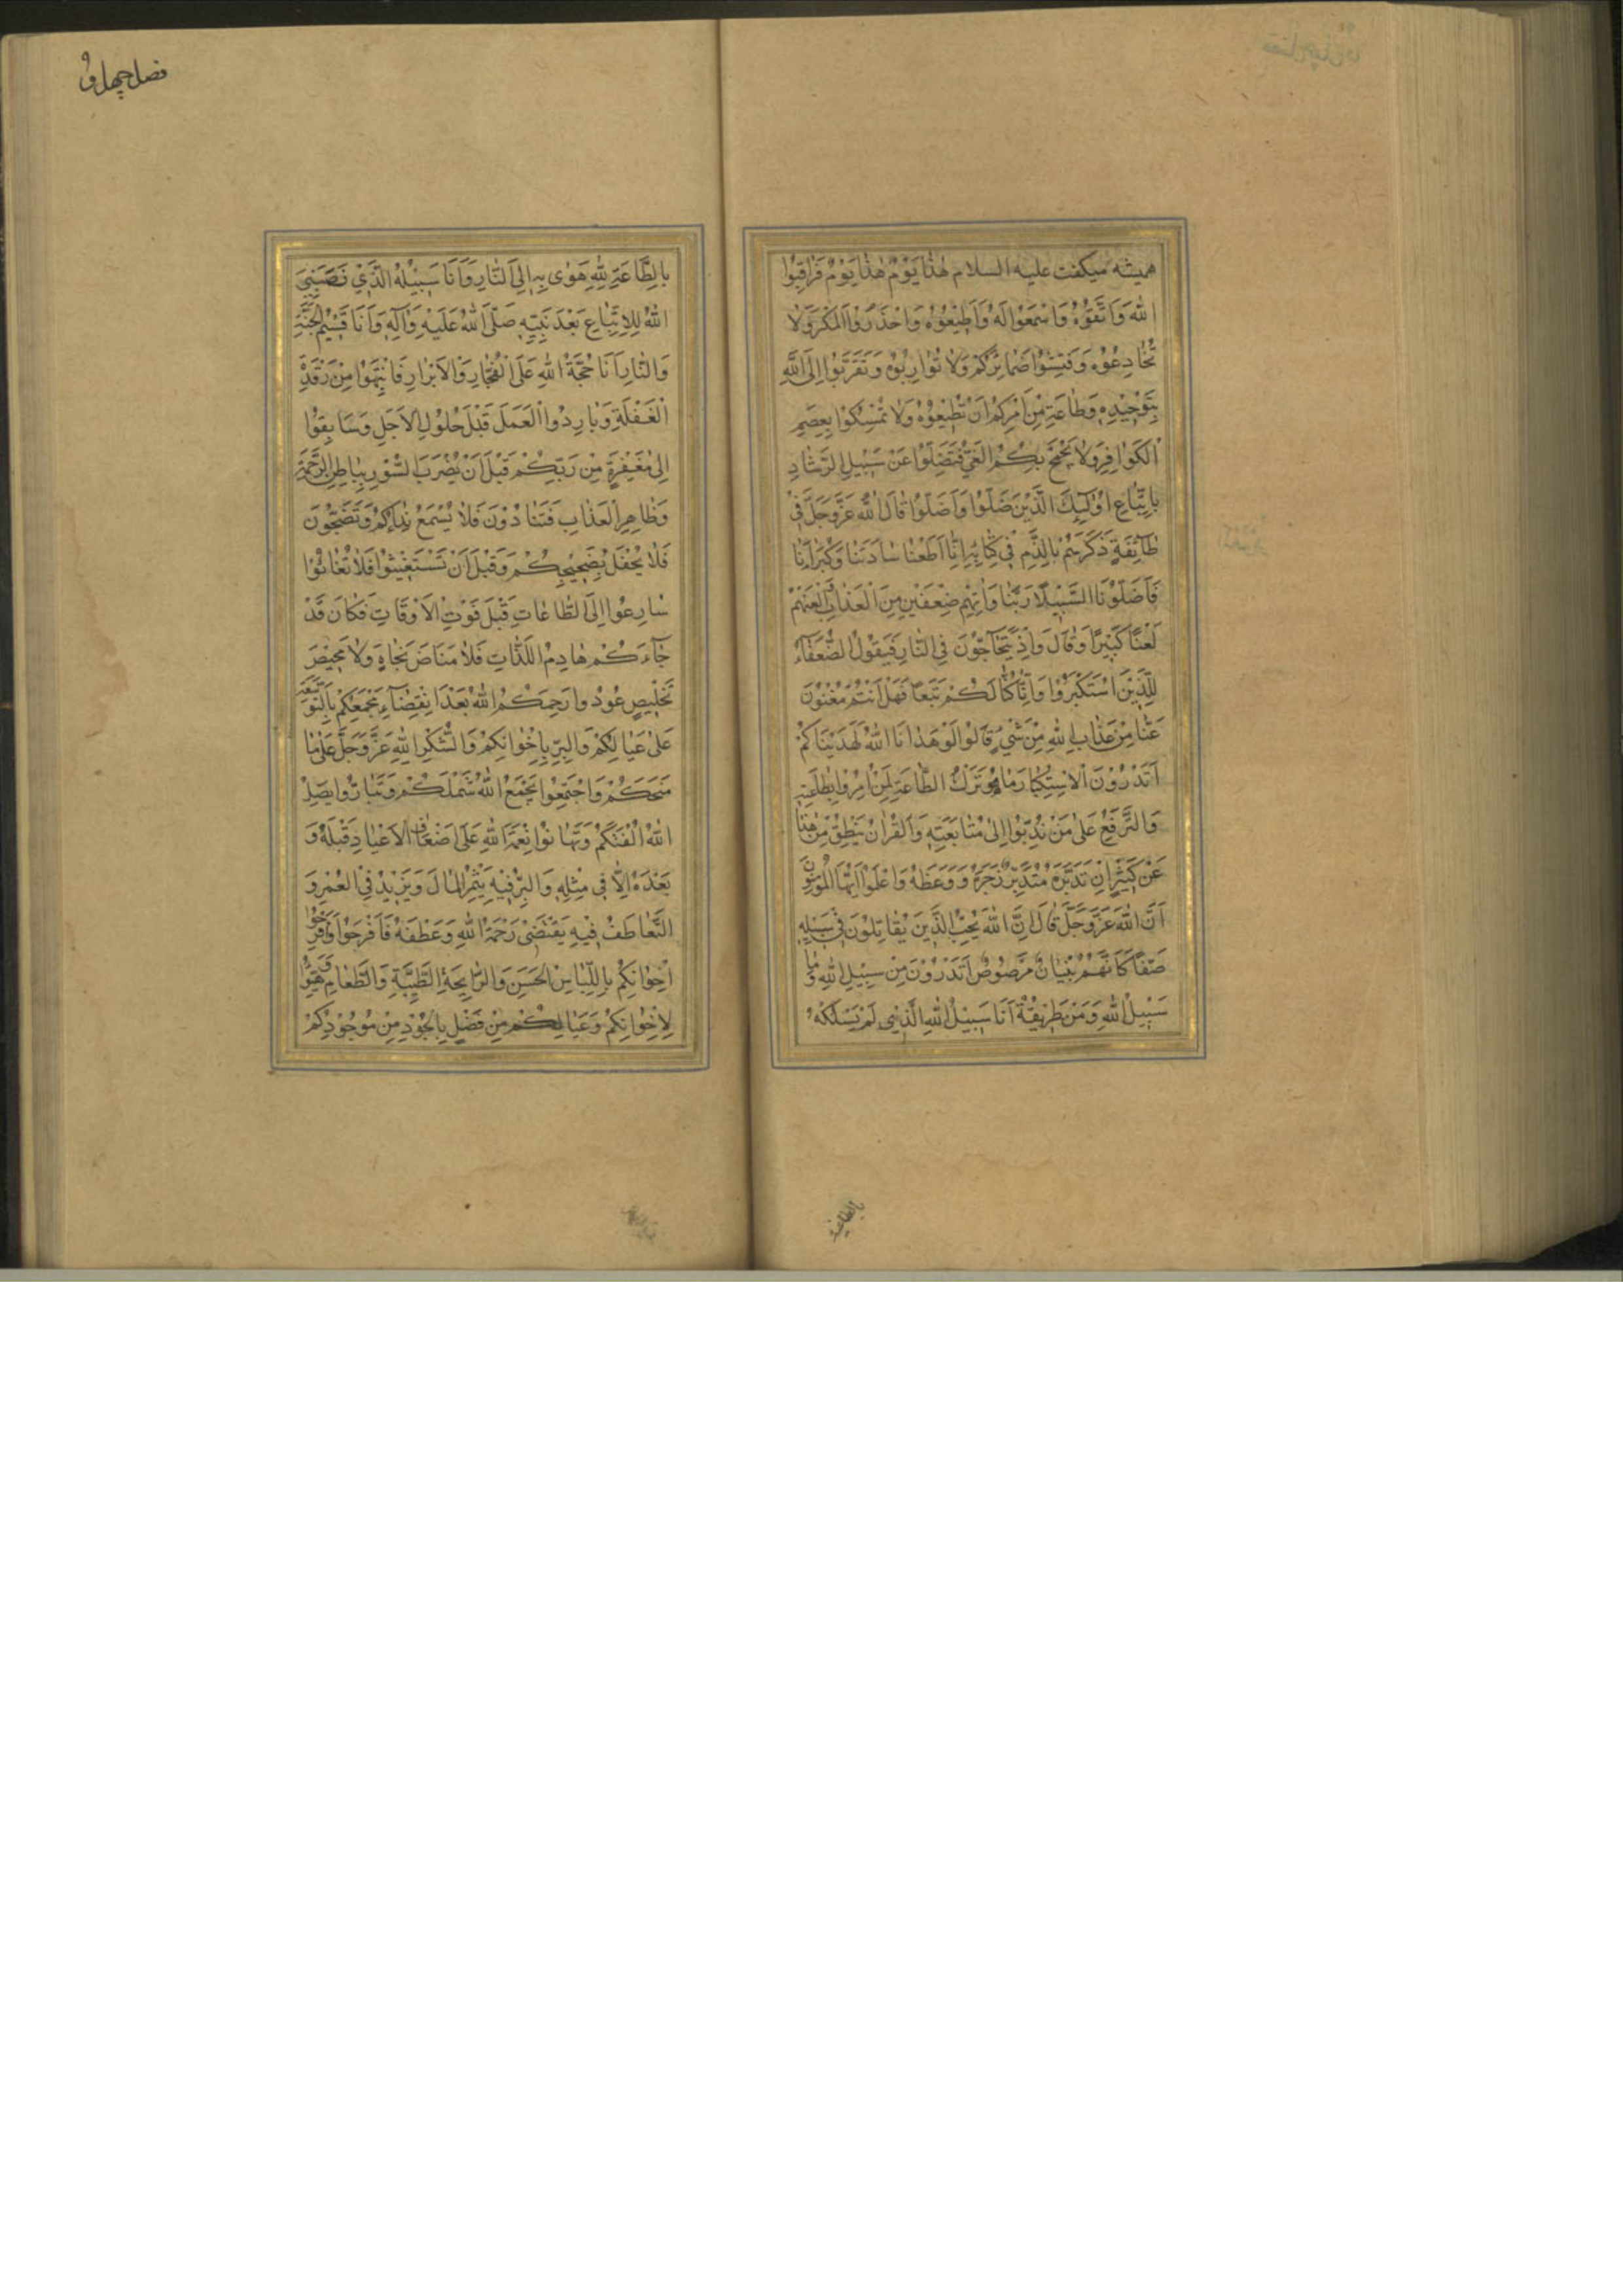 هميشه ميكفت عليه السلام هٰذا يَوْمٌ هٰذا يَوْمٌ فَرٰاقِبُوا
اللهَ وَاتَّقُوْهُ وَاسْمَعُوْا لَهُ وَاَطِيْعُوْهُ وَاحْذَرُوا الْمَكْرَ وَلٰا
تُخٰادِعُوْهُ وَفَتِّشُوْا ضَمٰائِرَكُمْ وَلٰا تُوٰارِبُوْهُ وَتَقَرَّبُوْا اِلَى اللهِ
بِتَوْحِيْدِهِ وَطٰاعَةِ مَنْ اَمَرَكُمْ اَنْ تُطِيْعُوْهُ وَلٰا تُمْسِكُوْا بِعِصَمِ
الْكَوٰافِرِ وَلٰا يَجْنَحْ بِكُمُ الْغَىُّ فَتَضِلُّوْا عَنْ سَبِيْلِ الرَّشٰادِ
بِاتِّبٰاعِ اُولٰئِكَ الَّذِيْنَ ضَلُّوْا وَاَضَلُّوْا قٰالَ اللهُ عَزَّ وَجَلَّ فِىْ
طٰآئِفَةٍ ذَكَرَهُمْ بِالذَّمِّ فِىْ كِتٰابِهِ اِنّٰا اَطَعْنٰا سٰادَتَنٰا وَكُبَرٰآءَنٰا
فَاَضَلُّوْنَا السَّبِيْلَا رَبَّنٰا وَاٰتِهِمْ ضِعْفَيْنِ مِنَ الْعَذٰابِ وَالْعَنْهُمْ
لَعْنًا كَبِيْرًا وَقٰالَ وَاِذْ يَتَحٰآجُّوْنَ فِى النّٰارِ فَيَقُوْلُ الضُّعَفٰآءُ
لِلَّذِيْنَ اسْتَكْبَرُوْا وَاِنّٰا كُنّٰا لَكُمْ تَبَعًا فَهَلْ اَنْتُمْ مُغْنُوْنَ
عَنّٰا مِنْ عَذٰابِ اللهِ مِنْ شَىْءٍ قٰالُوْا لَوْ هَدٰانَا اللهُ لَهَدَيْنٰاكُمْ
اَتَدْرُوْنَ الْاِسْتِكْبٰارَ مٰا هُوَ تَرْكُ الطّٰاعَةِ لِمَنْ اُمِرُوْا بِطٰاعَتِهِ
وَالتَّرَفُّعُ عَلٰى مَنْ نُدِبُوْا اِلٰى مُتٰابَعَتِهِ وَالْقُرْاٰنُ يَنْطِقُ مِنْ هٰذٰا
عَنْ كَثِيْرٍ اِنْ تَدَبَّرَهُ مُتَدَبِّرٌ زَجَرَهُ وَوَعَظَهُ وَاعْلَمُوْا اَيُّهَا الْمُؤْمِنُوْنَ
اَنَّ اللهَ عَزَّ وَجَلَّ قٰالَ اِنَّ اللهَ يُحِبُّ الَّذِيْنَ يُقٰاتِلُوْنَ فِىْ سَبِيْلِهِ
صَفًّا كَاَنَّهُمْ بُنْيٰانٌ مَرْصُوْصٌ اَتَدْرُوْنَ مٰا سَبِيْلُ اللهِ وَمٰا
سَبِيْلُ اللهِ وَمَنْ طَرِيْقُهُ اَنَا سَبِيْلُ اللهِ الَّذِىْ لَمْ يَسْلُكْهُ
بالطاعة
فصل چهل و
بِالطّٰاعَةِ لِلهِ هَوٰى بِهِ اِلَى النّٰارِ وَاَنَا سَبِيْلُهُ الَّذِيْ نَصَبَنِىَ
اللهُ لِلاِتِّبٰاعِ بَعْدَ نَبِيِّهِ صَلَّى اللهُ عَلَيْهِ وَاٰلِهِ وَاَنَا قَسِيْمُ الْجَنَّةِ
وَالنّٰارِ اَنَا حُجَّةُ اللهِ عَلَى الْفُجّٰارِ وَالْاَبْرٰارِ فَانْتَبِهُوْا مِنْ رَقْدَةِ
الْغَفْلَةِ وَبٰادِرُوا الْعَمَلَ قَبْلَ حُلُوْلِ الْاَجَلِ وَسٰابِقُوْا
اِلٰى مَغْفِرَةٍ مِنْ رَبِّكُمْ قَبْلَ اَنْ يُضْرَبَ السُّوْرُ بِبٰاطِنِ الرَّحْمَةِ
وَظٰاهِرِ الْعَذٰابِ فَتُنٰادُوْنَ فَلٰا يُسْمَعُ نِدٰاءُكُمْ وَتَضِجُّوْنَ
فَلٰا يُحْفَلُ بِضَجِيْجِكُمْ وَقَبْلَ اَنْ تَسْتَغِيْثُوْا فَلٰا تُغٰاثُوْا
سٰارِعُوْا اِلَى الطّٰاعٰاتِ قَبْلَ فَوْتِ الْاَوْقٰاتِ فَكَاَنْ قَدْ
جٰآءَكُمْ هٰادِمُ اللَّذّٰاتِ فَلٰا مَنٰاصَ نَجٰاةٍ وَلٰا مَحِيْصَ
تَخْلِيْصٍ عُوْدُوا رَحِمَكُمُ اللهُ بَعْدَ انْقِضٰآءِ مَجْمَعِكُمْ بِالتَّوْسِعَةِ
عَلٰى عِيٰالِكُمْ وَالْبِرِّ بِاِخْوٰانِكُمْ وَالشُّكْرِ لِلهِ عَزَّ وَجَلَّ عَلٰى مٰا
مَنَحَكُمْ وَاجْتَمِعُوْا يَجْمَعِ اللهُ شَمْلَكُمْ وَتَبٰارُّوْا يَصِلِ
اللهُ اُلْفَتَكُمْ وَتَهٰانَوْا نِعْمَةَ اللهِ عَلٰى اَضْعٰافِ الْاَعْيٰادِ قَبْلَهُ وَ
بَعْدَهُ اِلّٰا فِى مِثْلِهِ وَالْبِرُّ فِيْهِ يُثْمِرُ الْمٰالَ وَيَزِيْدُ فِى الْعُمْرِ وَ
التَّعٰاطُفُ فِيْهِ يَقْتَضِىْ رَحْمَةَ اللهِ وَعَطْفَهُ فَافْرَحُوْا وَفَرِّحُوْا
اِخْوٰانَكُمْ بِاللِّبٰاسِ الْحَسَنِ وَالرّٰايِحَةِ الطَّيِّبَةِ وَالطَّعٰامِ وَهَيِّؤُا
لِاِخْوٰانِكُمْ وَعِيٰالِكُمْ مِنْ فَضْلِهِ بِالْجُوْدِ مِنْ مَوْجُوْدِكُمْ